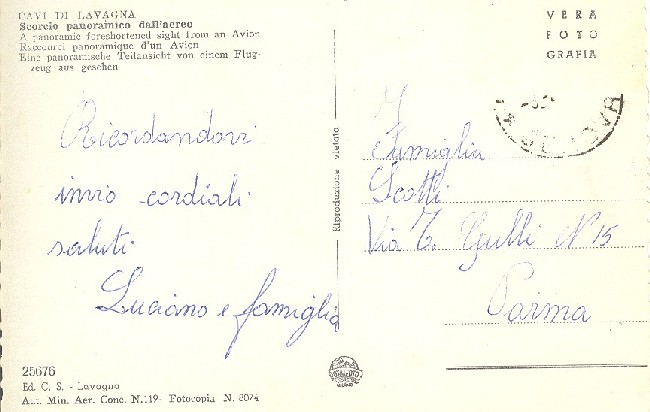 CAVI DI LAVAGNA
Scorcio panoramico dall'aereo
A panoramic foreshortened sight from an Avion
Raccourci panoramique d'un Avion
Eine panoramische Teilansicht von einem Flug-
zeug aus gesehen
VERA
FOTO
GRAFIA
Ricordandovi
invio cordiali
saluti
Luciano e famiglia
Riproduzione vietata
Famiglia
Scotti
Via T. Gulli N 15
Parma
25676
Ed. C. S. - Lavagna
Aut. Min. Aer. Conc. N. 119 - Fotocopia N. 8074